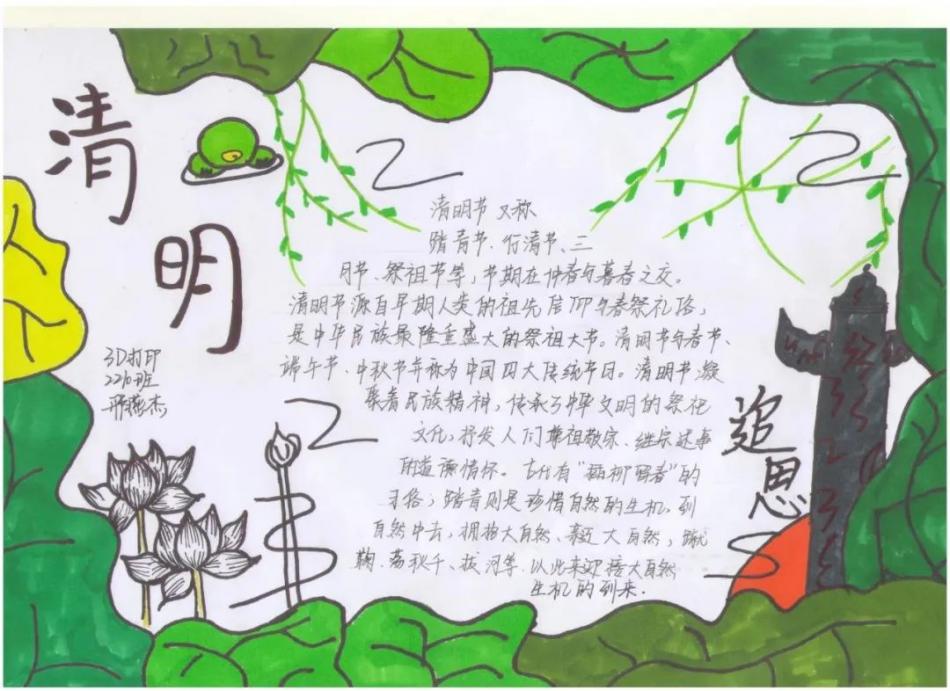 清
明
3D打印
2210班
邢燕杰
清明节 又称
踏青节、行清节、三
月节、祭祖节等，节期在仲春与暮春之交。
清明节源自早期人类的祖先信仰与春祭礼俗，
是中华民族最隆重盛大的祭祖大节。清明节与春节、
端午节、中秋节并称为中国四大传统节日。清明节凝
聚着民族精神，传承了中华文明的祭祀
文化，抒发人们尊祖敬宗、继宗述事
的道德情怀。古代有“插柳留春”的
习俗；踏青则是珍惜自然的生机，到
自然中去，拥抱大自然、亲近大自然，蹴
鞠、荡秋千、拔河等，以此来迎接大自然
生机的到来.
追
思